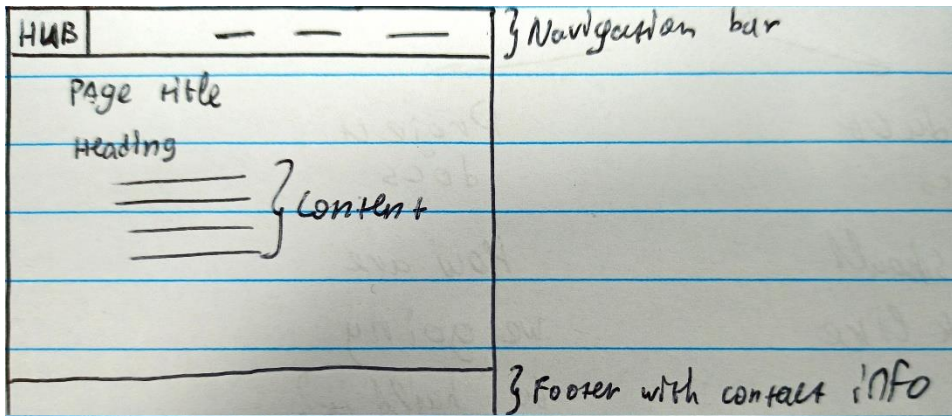 HUB
} Navigation bar
PAge title
Heading
} Content
} Footer with contact info